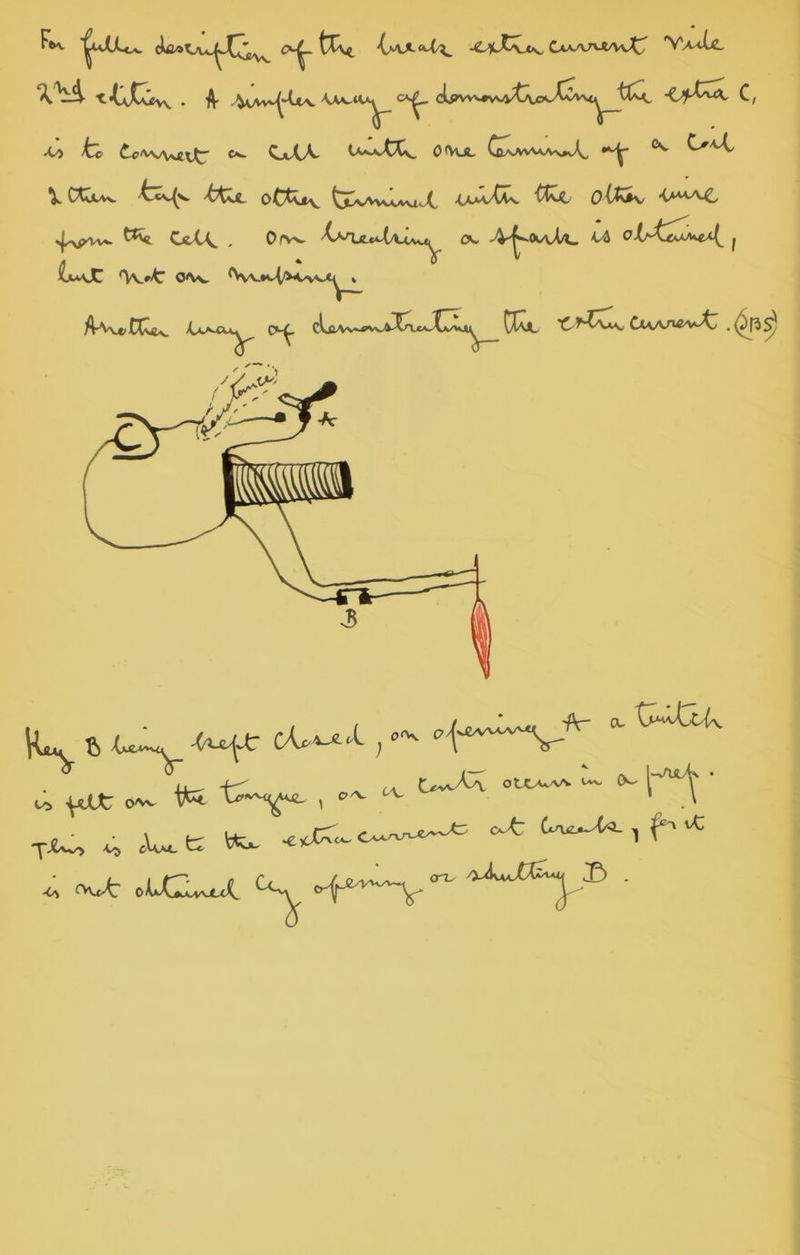 For fuller description of the break extra current vide
edition. A simpler way of demonstrating the extra C,
is to connect a cell with one terminal of a coil
& then tap the other terminal with the other wire
from the cell. On breaking a spark is obtained,
but not on making.
Another way of demonstrating the extra current.
C
A
B
Key B being kept closed, on opening A a twitch
is felt on the tongue, on a with open in a prep.
This is due to the extra current at break, for it
is not obtained by opening or shutting B.